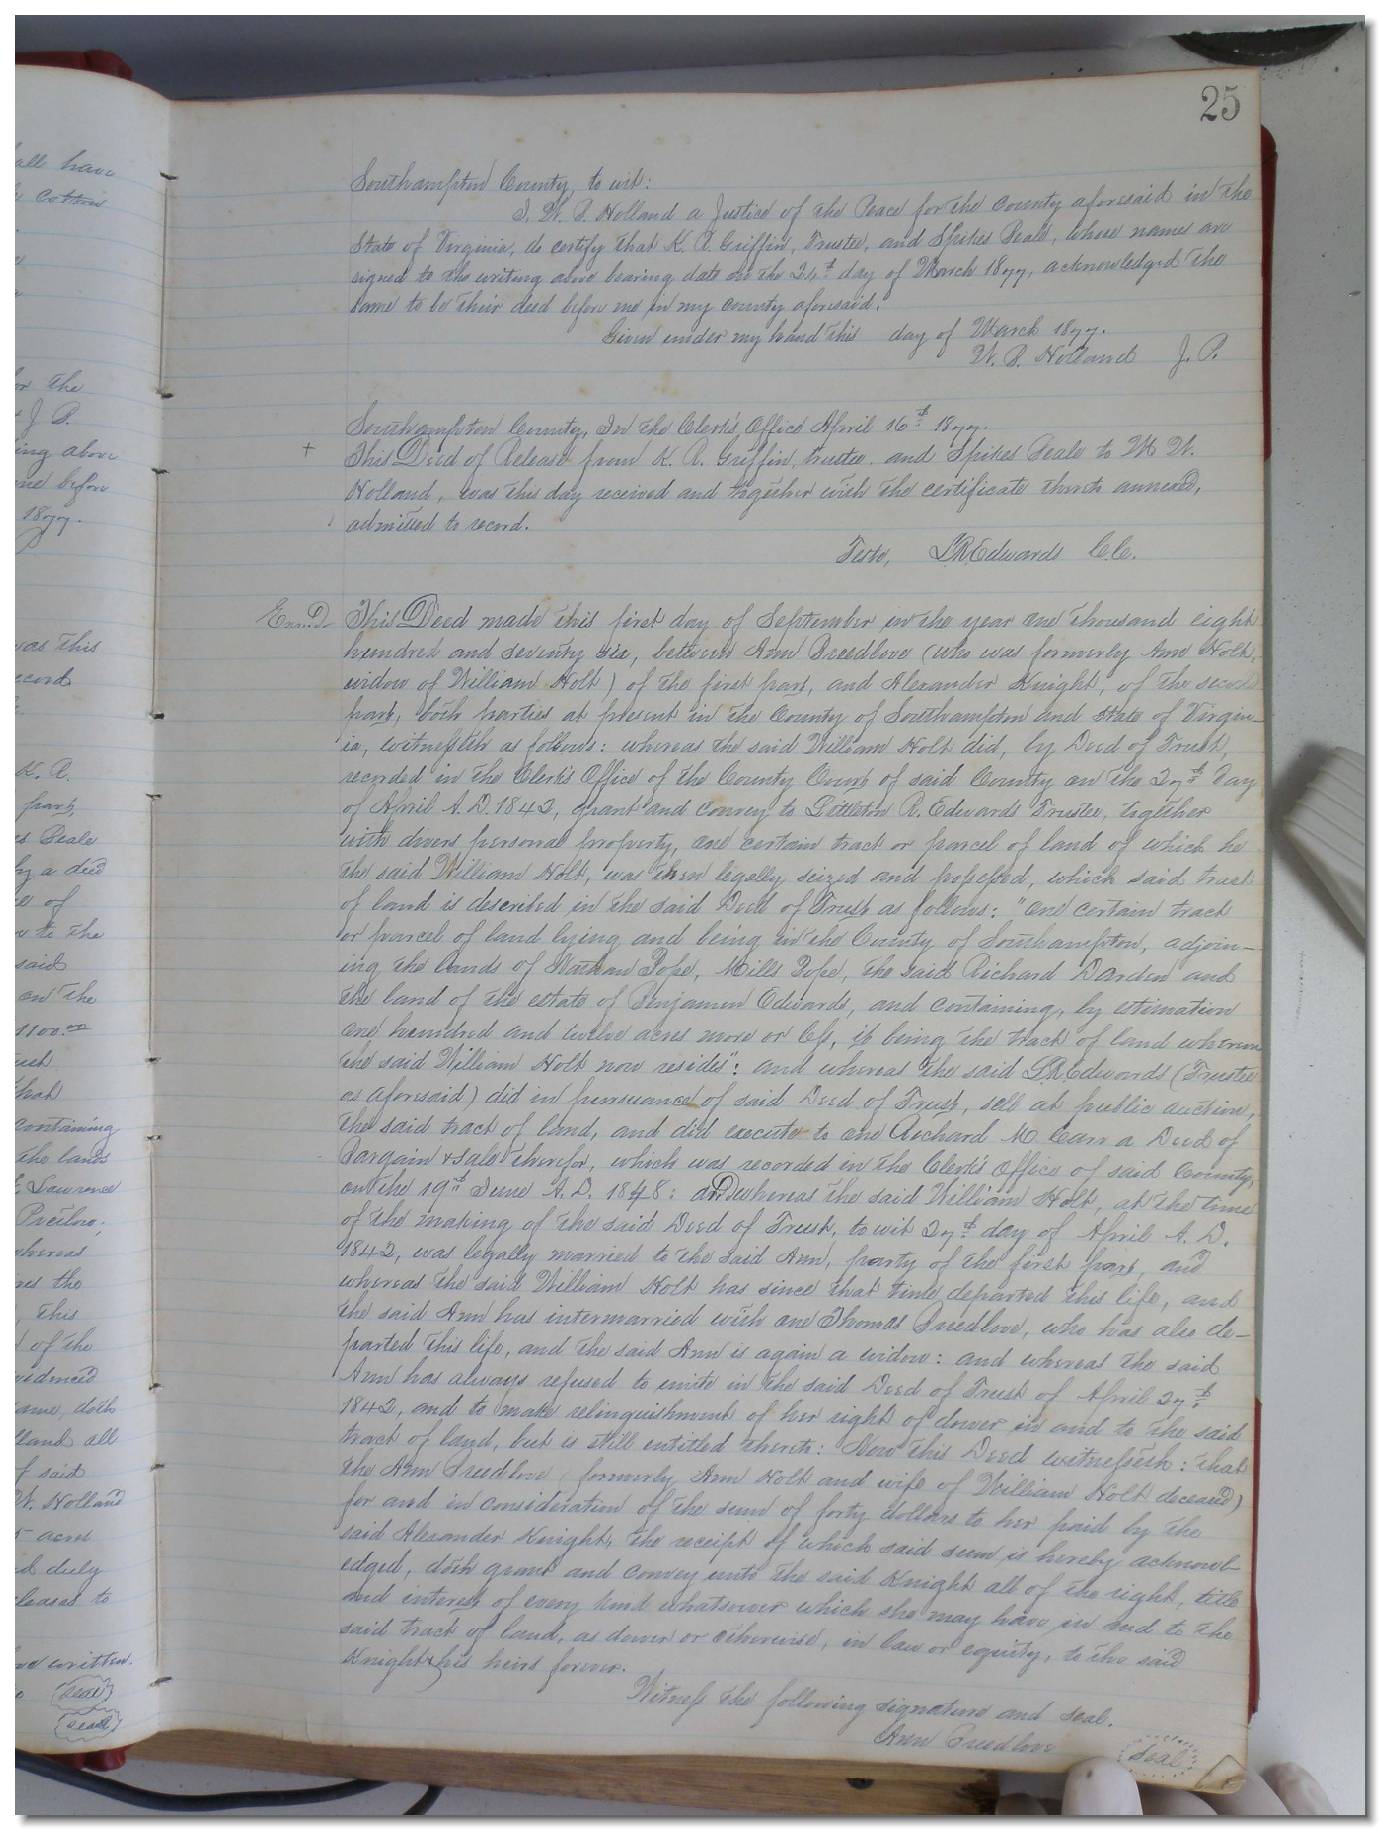 25
all have
cotton
Southampton County, to wit:
I, W. B. Holland a Justice of the Peace for the County aforesaid in the
State of Virginia, do certify that K. R. Griffin, Trustee, and Spikes Beale, whose names are
signed to the writing above bearing date on the 24th day of March 1877, acknowledged the
same to be their deed before me in my county aforesaid.
Given under my hand this day of March 1877.
W. B. Holland J. P.
or the
J. P.
ing above
me before
1877.
Southampton County, In the Clerk's Office April 16th 1877.
+ This Deed of Release from K. R. Griffin, trustee and Spikes Beale to W. W.
Holland, was this day received and together with the certificate thereto annexed,
admitted to record.
Teste, L. R. Edwards C.C.
Exam'd
This Deed made this first day of September in the year one thousand eight
hundred and seventy six, between Ann Breedlove (who was formerly Ann Holt,
widow of William Holt) of the first part, and Alexander Knight, of the second
part, both parties at present in the County of Southampton and State of Virgin-
ia, witnesseth as follows: whereas the said William Holt did, by Deed of Trust,
recorded in the Clerk's Office of the County Court of said County on the 27th Day
of April A. D. 1842, grant and convey to Littleton R. Edwards Trustee, together
with divers personal property, one certain tract or parcel of land of which he
the said William Holt, was then legally seized and possessed, which said tract
of land is described in the said Deed of Trust as follows: "one certain tract
or parcel of land lying and being in the County of Southampton, adjoin-
ing the lands of Nathan Pope, Mills Pope, the said Richard Darden and
the land of the estate of Benjamin Edwards, and containing, by estimation
one hundred and twelve acres more or less, it being the tract of land whereon
the said William Holt now resides": and whereas the said L. R. Edwards (Trustee
as aforesaid) did in pursuance of said Deed of Trust, sell at public auction,
the said tract of land, and did execute to one Richard M. Carr a Deed of
Bargain & sale therefor, which was recorded in the Clerk's Office of said County,
on the 19th June A. D. 1848: and whereas the said William Holt, at the time
of the making of the said Deed of Trust, to wit 27th day of April A. D.
1842, was legally married to the said Ann, party of the first part, and
whereas the said William Holt has since that time departed this life, and
the said Ann has intermarried with one Thomas Breedlove, who has also de-
parted this life, and the said Ann is again a widow: and whereas the said
Ann has always refused to unite in the said Deed of Trust of April 27th
1842, and to make relinquishment of her right of dower in and to the said
tract of land, but is still entitled thereto: Now this Deed witnesseth: that
the Ann Breedlove (formerly Ann Holt and wife of William Holt deceased)
for and in consideration of the sum of forty dollars to her paid by the
said Alexander Knight, the receipt of which said sum is hereby acknowl-
edged, doth grant and convey unto the said Knight all of the right, title
and interest of every kind whatsoever which she may have in and to the
said tract of land, as dower or otherwise, in law or equity, to the said
Knight & his heirs forever.
Witness the following signature and seal.
Ann Breedlove seal
was this
record
K. R.
part,
Beale
by a deed
of
to the
said
on the
1100.00
that
containing
the lands
Lawrence
whereas
the
this
of the
evidenced
doth
all
said
W. Holland
acres
duly
releases to
written.
seal
seal